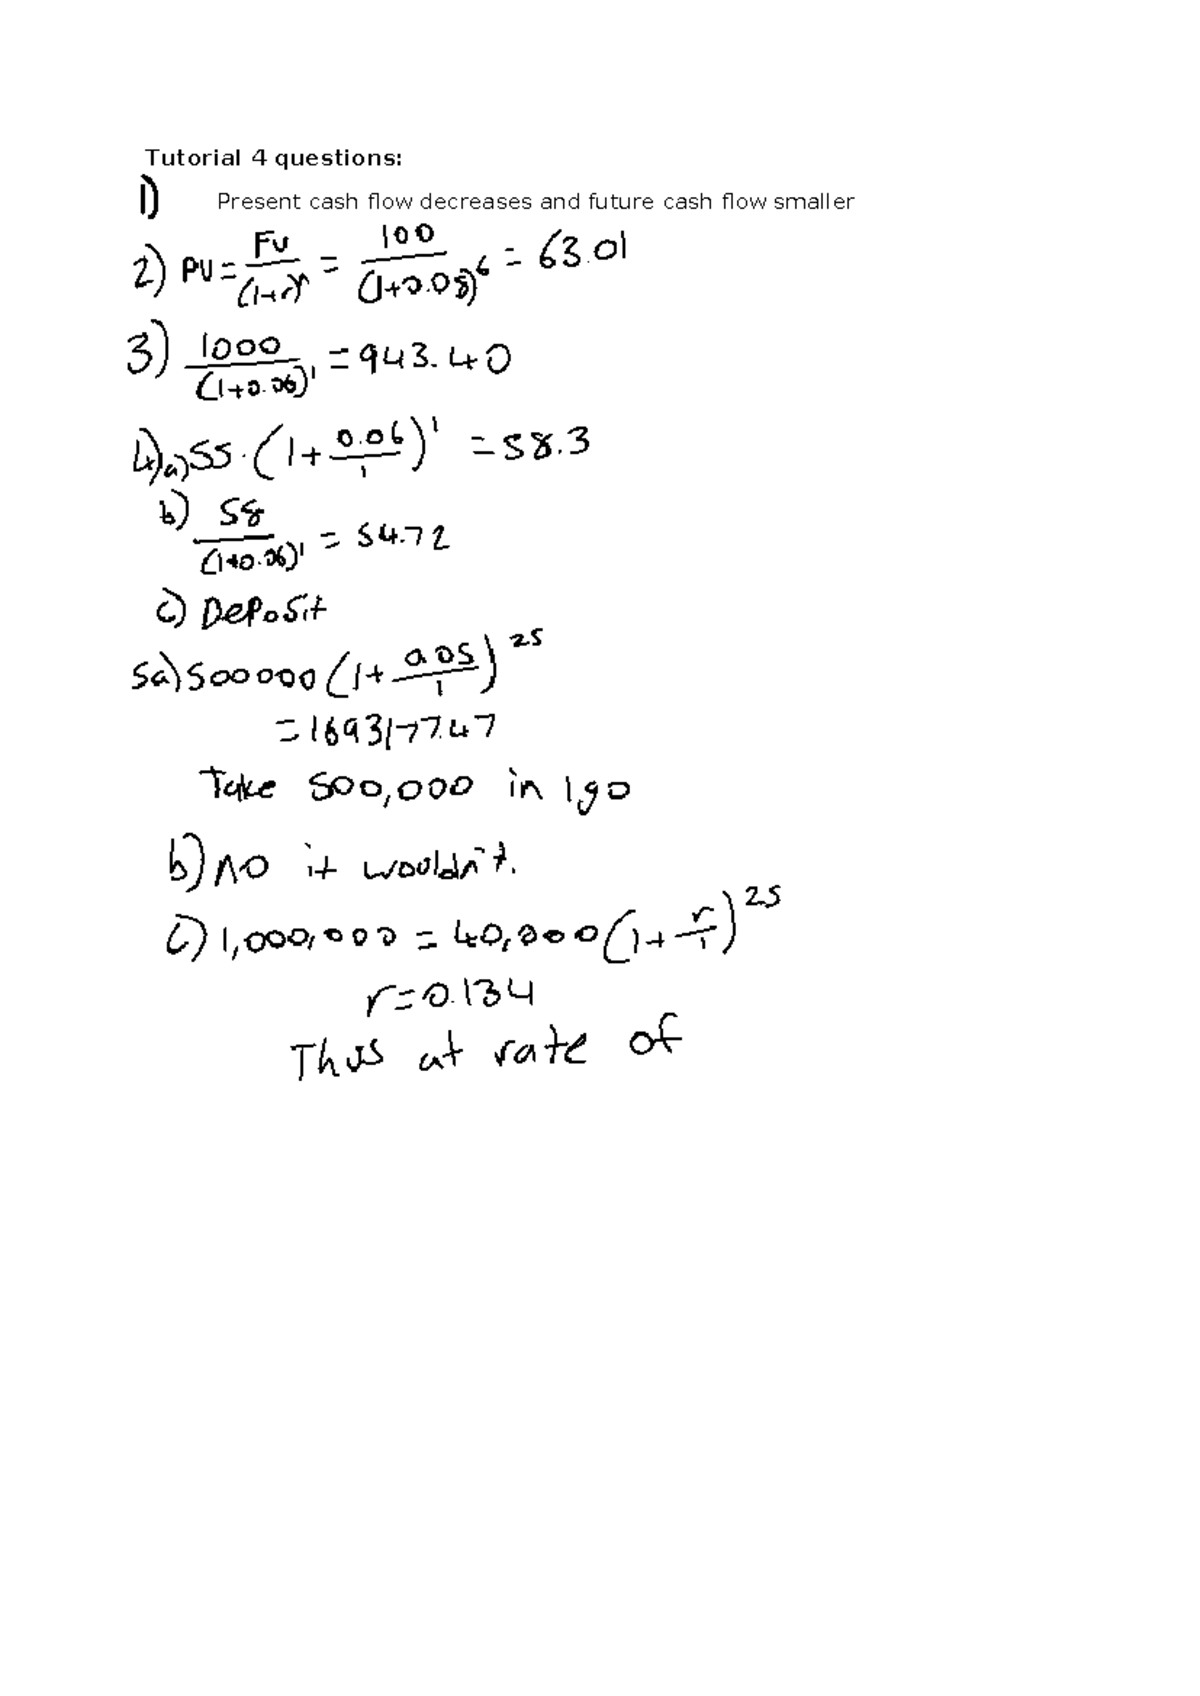 Tutorial 4 questions:
1) Present cash flow decreases and future cash flow smaller
2) PV = FV/(1+r)^n = 100/(1+0.08)^6 = 63.01
3) 1000/(1+0.06)^1 = 943.40
4)a) 55·(1+0.06/1)^1 = 58.3
b) 58/(1+0.06)^1 = 54.72
c) Deposit
5a) 500000(1+0.05/1)^25
=1693177.47
Take 500,000 in 1 go
b) no it wouldn't.
c) 1,000,000 = 40,000(1+r/1)^25
r=0.134
Thus at rate of